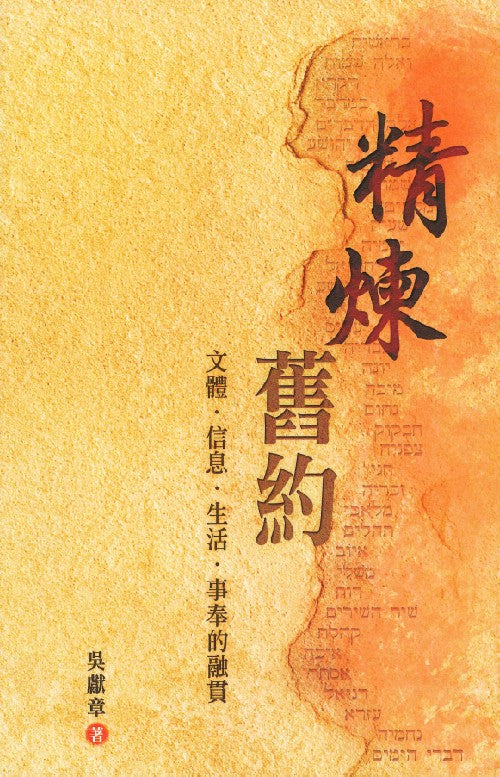 精煉
舊約
文體・信息・生活・事奉的融貫
吳獻章 著
בראשית
ואלה שמות
ויקרא
במדבר
יהושע
יונה
מיכה
נחום
חבקוק
צפניה
חגי
זכריה
מלאכי
תהלים
איוב
משלי
רות
שיר השירים
קהלת
איכה
אסתר
דניאל
עזרא
נחמיה
דברי הימים